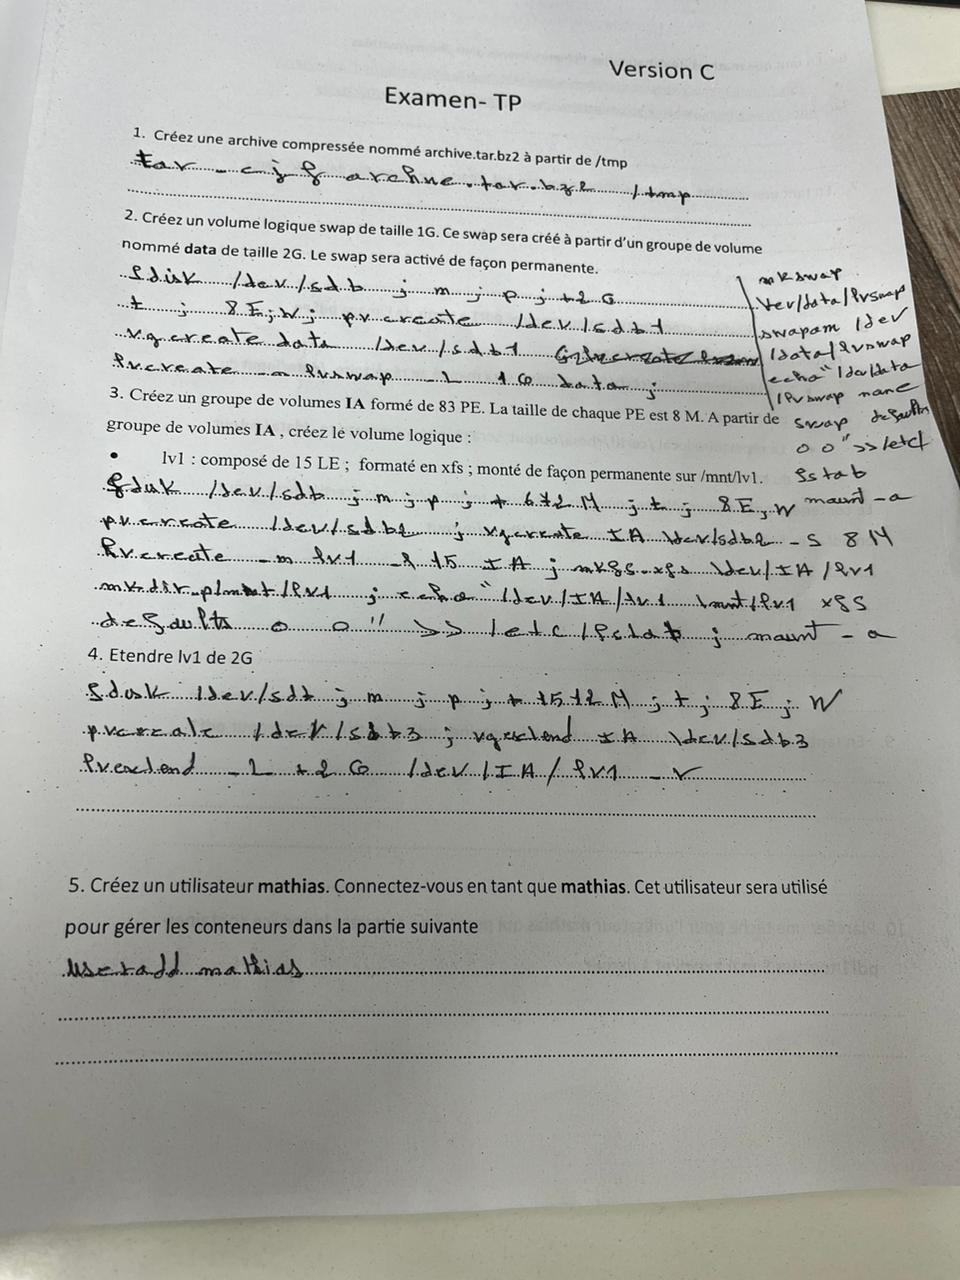 Version C
Examen- TP
1. Créez une archive compressée nommé archive.tar.bz2 à partir de /tmp
tar -cjf archive.tar.bz2 /tmp
2. Créez un volume logique swap de taille 1G. Ce swap sera créé à partir d'un groupe de volume
nommé data de taille 2G. Le swap sera activé de façon permanente.
fdisk /dev/sdb ; m ; p ; +2G
t ; 8E ; W ; pvcreate /dev/sdb1
vgcreate data /dev/sdb1
lvcreate -n lvswap -L 1G data ;
mkswap
/dev/data/lvswap
swapon /dev
/data/lvswap
echo "/dev/data
/lvswap none
swap defaults
0 0" >> /etc/
fstab
3. Créez un groupe de volumes IA formé de 83 PE. La taille de chaque PE est 8 M. A partir de
groupe de volumes IA , créez le volume logique :
• lv1 : composé de 15 LE ; formaté en xfs ; monté de façon permanente sur /mnt/lv1.
fdisk /dev/sdb ; m ; p ; + 672 M ; t ; 8E ; W mount -a
pvcreate /dev/sdb2 ; vgcreate IA \dev/sdb2 -s 8M
lvcreate -n lv1 -l 15 IA ; mkfs.xfs \dev/IA/lv1
mkdir -p /mnt/lv1 ; echo "/dev/IA/lv1 \mnt/lv1 xfs
defaults 0 0" >> /etc/fstab ; mount -a
4. Etendre lv1 de 2G
fdisk /dev/sdb ; m ; p ; + 1512 M ; t ; 8E ; W
pvcreate /dev/sdb3 ; vgextend IA \dev/sdb3
lvextend -L +2G /dev/IA/lv1 -r
5. Créez un utilisateur mathias. Connectez-vous en tant que mathias. Cet utilisateur sera utilisé
pour gérer les conteneurs dans la partie suivante
useradd mathias